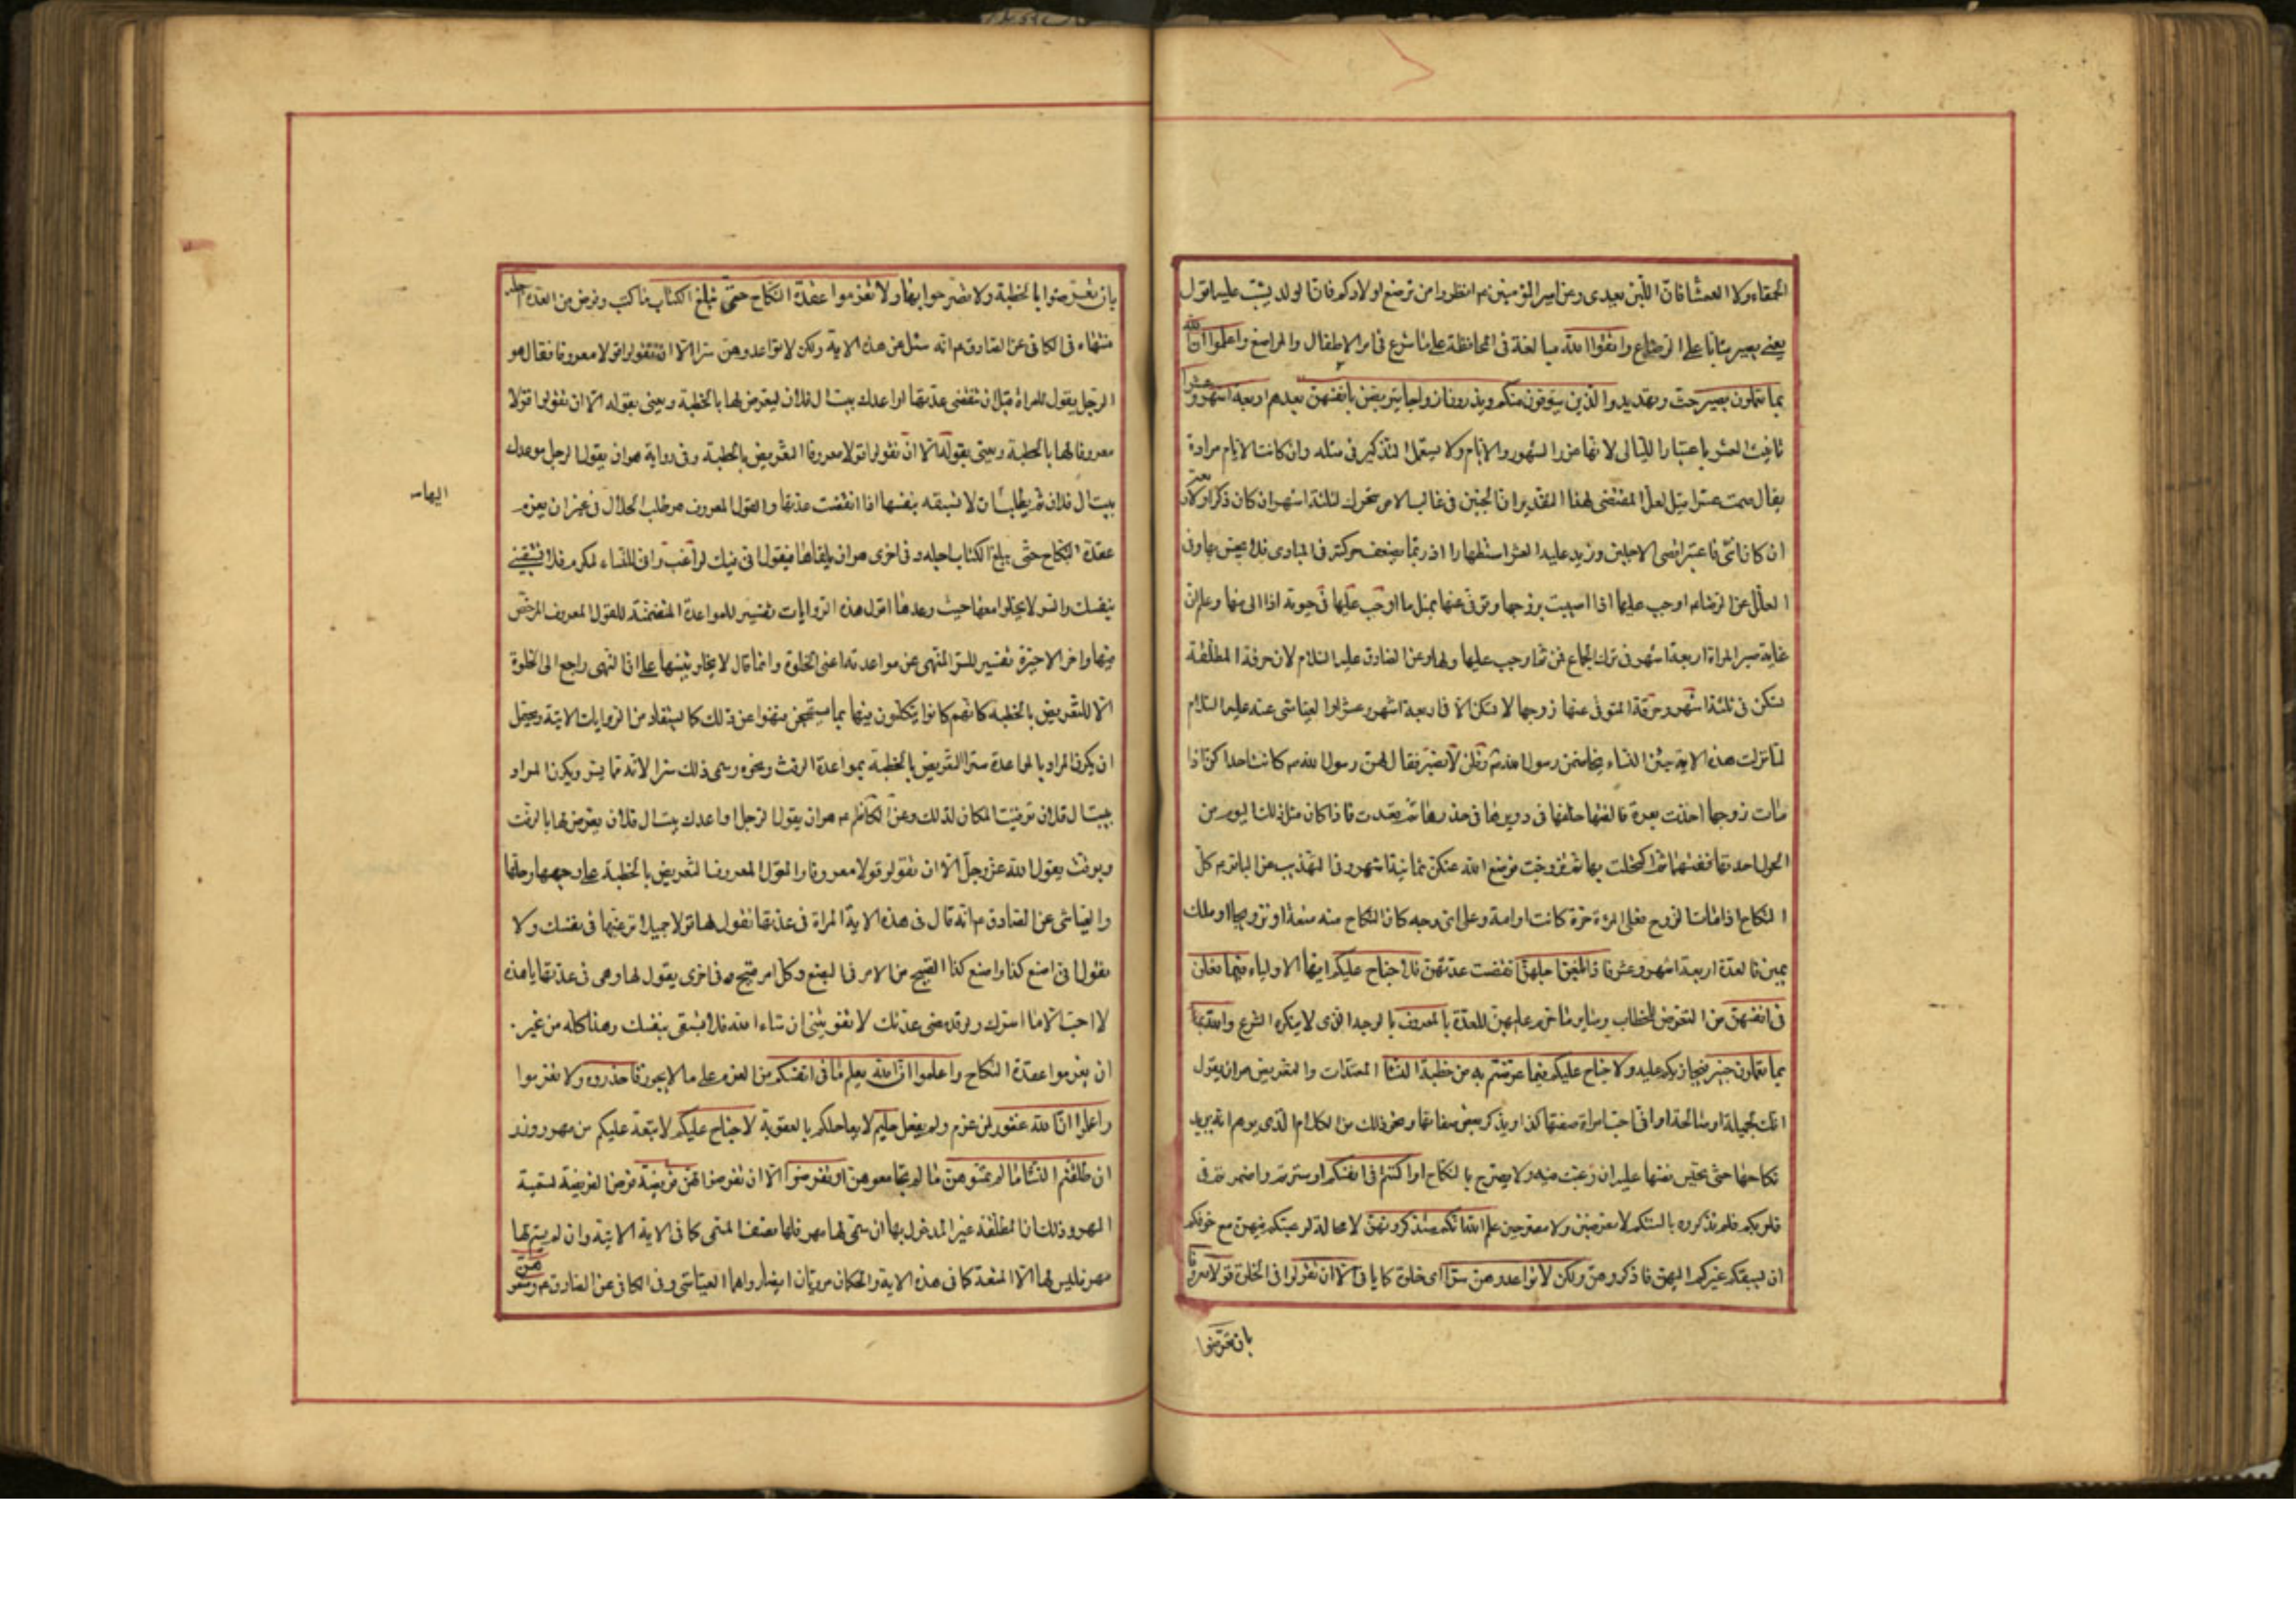 الحمقاء ولا العمشا فان اللبن يعدى وعن امير المؤمنين ع م انظروا من ترضع اولادكم فان الولد يشب عليه اقول
يعنى يصير شابا على الرضاع واتقوا الله مبالغة فى المحافظة على ما شرع فى امر الاطفال والمراضع واعلموا ان الله
بما تعملون بصير حث وتهديد والذين يتوفون منكم ويذرون ازواجا يتربصن بانفسهن بعدهم اربعة اشهر وعشرا
تانيث العشر باعتبار الليالى لانها غرر الشهور والايام ولا يستعمل التذكير فى مثله وان كانت الايام مرادة
يقال صمت عشرا قيل لعل المقتضى لهذا التقدير ان الجنين فى غالب الامر يتحرك لثلثة اشهر ان كان ذكرا ولاربعة
ان كان انثى فاعتبر اقصى الاجلين وزيد عليه العشر استظهارا اذ ربما يضعف حركته فى المبادى فلا يحس بها وفى
العلل عن الرضا ع م اوجب عليها اذا اصيبت بزوجها وتوفى عنها بمثل ما اوجب عليها فى حيوته اذا الى منها وعلم ان
غاية صبر المراة اربعة اشهر فى ترك الجماع فمن ثم اوجب عليها ولها وعن الصادق عليه السلام لان حرقة المطلقة
تسكن فى ثلثة اشهر وحرقة المتوفى عنها زوجها لا تسكن الا فى اربعة اشهر وعشر والعياشى عنه عليه السلام
لما نزلت هذه الاية جئن النساء يخاصمن رسول الله ص وقلن لا نصبر فقال لهن رسول الله ص كانت احداكن اذا
مات زوجها اخذت بعرة فالقتها خلفها فى دويرها فى خدرها ثم قعدت فاذا كان مثل ذلك اليوم من
الحول اخذتها ففتتها ثم اكتحلت بها ثم تزوجت فوضع الله عنكن ثمانية اشهر وفى التهذيب عن الباقر ع م كل
النكاح اذا مات الزوج فعلى المرءة حرة كانت او امة وعلى اى وجه كان النكاح منه متعة او تزويجا او ملك
يمين فالعدة اربعة اشهر وعشر فاذا بلغن اجلهن انقضت عدتهن فلا جناح عليكم ايها الاولياء فيما فعلن
فى انفسهن من التعرض للخطاب وساير ما حرم عليهن للعدة بالمعروف بالوجه الذى لا ينكره الشرع والله بما
بما تعملون خبير فيجازيكم عليه ولا جناح عليكم فيما عرضتم به من خطبة النسا المعتدات والتعريض هو ان يقول
انك لجميلة او صالحة او انى احب امراة صفتها كذا ويذكر بعض صفاتها ونحو ذلك من الكلام الذى يوهم انه يريد
نكاحها حتى يحبس نفسها عليه ان رغبت فيه ولا يصرح بالنكاح او اكننتم فى انفسكم او سترتم واضمرتم فى
قلوبكم فلم تذكروه بالسنتكم لا معرضين ولا مصرحين علم الله انكم ستذكرونهن لا محالة لرغبتكم فيهن مع خوفكم
ان يسبقكم غيركم اليهن فاذكروهن ولكن لا تواعدوهن سرا اى خلوة كما ياتى الا ان تقولوا فى الخلوة قولا معروفا
بان تعرضوا
بان تعرضوا بالخطبة ولا تصرحوا بها ولا تعزموا عقدة النكاح حتى يبلغ الكتاب ما كتب وفرض من العدة اجله
منتهاه فى الكافى عن الصادق ع م انه سئل عن هذه الاية ولكن لا تواعدوهن سرا الا ان تقولوا قولا معروفا فقال هو
الرجل يقول للمراة قبل ان تنقضى عدتها اواعدك بيت ال فلان ليعرض لها بالخطبة ويعنى بقوله الا ان تقولوا قولا
معروفا لها بالخطبة ويعنى بقوله الا ان تقولوا قولا معروفا التعريض بالخطبة وفى رواية هو ان يقول الرجل موعدك
بيت ال فلان ثم يطلب ان لا تسبقه بنفسها اذا انقضت عدتها والقول المعروف هو طلب الحلال فى غير ان يعزم
اليها سه
عقدة النكاح حتى يبلغ الكتاب اجله وفى اخرى هو ان يلقاها فيقول انى فيك لراغب وانى للنساء لمكرم فلا تسبقينى
بنفسك والسر لا يخلو معها حيث وعدها اقول هذه الروايات تفسير للمواعدة المتضمنة للقول المعروف المرخص
فيها واخر الاخيرة تفسير للسر المنهى عن مواعدته اعنى الخلوة وانما قال لا يخلو تنبيها على ان النهى راجع الى الخلوة
الا للتعريض بالخطبة كانهم كانوا يتكلمون فيها بما يستهجن فنهوا عن ذلك كما يستفاد من الروايات الاتية ويحتمل
ان يكون المراد بالمواعدة سرا التعريض بالخطبة بمواعدة الرفث ونحوه وسمى ذلك سرا لانه مما يسر ويكون المراد
ببيت ال فلان توقيت المكان لذلك وعن الكاظم ع م هو ان يقول الرجل اواعدك بيت ال فلان يعرض لها بالرفث
ويرفث يقول الله عز وجل الا ان تقولوا قولا معروفا والقول المعروف التعريض بالخطبة على وجهها وحلها
والعياشى عن الصادق ع م انه قال فى هذه الاية المراة فى عدتها تقول لها قولا جميلا ترغبها فى نفسك ولا
تقول انى اصنع كذا واصنع كذا القبيح من الامر فى البضع وكل امر قبيح وفى اخرى يقول لها وهى فى عدتها يا هذه
لا احب الا ما اسرك ولو قد مضى عدتك لا تفوتينى ان شاء الله فلا تسبقى بنفسك وهذا كله من غير
ان يعزموا عقدة النكاح واعلموا ان الله يعلم ما فى انفسكم من العزم على ما لا يجوز فاحذروه ولا تعزموا
واعلموا ان الله غفور لمن عزم ولم يفعل حليم لا يعاجلكم بالعقوبة لا جناح عليكم لا تبعة عليكم من مهر ووزر
ان طلقتم النسا ما لم تمسوهن ما لم تجامعوهن او تفرضوا الا ان تفرضوا لهن فريضة فرض الفريضة تسمية
المهر وذلك ان المطلقة غير المدخول بها ان سمى لها مهر فلها نصف المسمى كما فى الاية الاتية وان لم يسم لها
مهر فليس لها الا المتعة كما فى هذه الاية والحكمان مرويان ايضا رواهما العياشى وفى الكافى عن الصادق ع م ومتعوهن